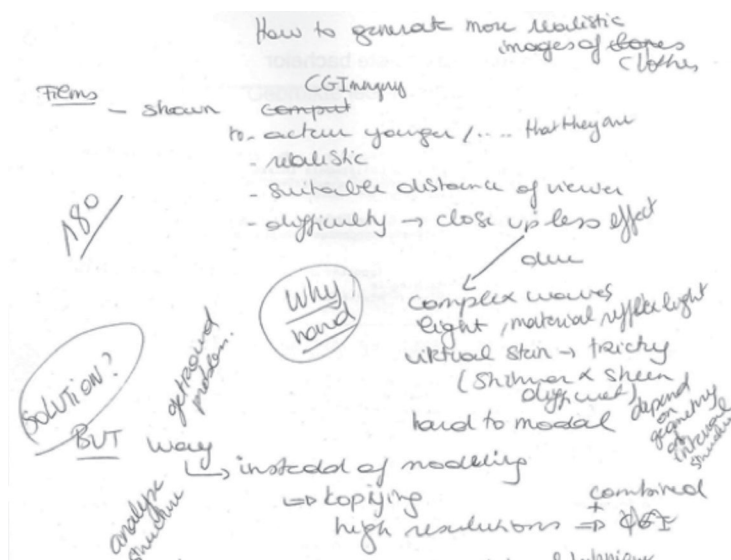 How to generate more realistic
images of clothes
Films
CGImagery
- shown comput
to - actors younger /.... that they are
- realistic
- suitable distance of viewer
- difficulty → close up less effect
180
due
Why
hard
complex waves
light, material, reflex light
virtual skin → tricky
(Shimmer & sheen
difficult)
hard to modal
depend
on
geometry
of
internal
structure
SOLUTION?
get round
problem.
BUT way
↳ instedd of modeling
⇒ kopiying
combined
+
high resolutions ⇒ CGI
analyse
structure